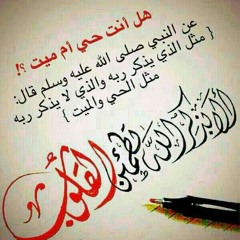 هل أنت حي أم ميت ؟!
عن النبي صلى الله عليه وسلم قال:
{ مثل الذي يذكر ربه والذي لا يذكر ربه
مثل الحي والميت }
ألا بذكر الله تطمئن القلوب